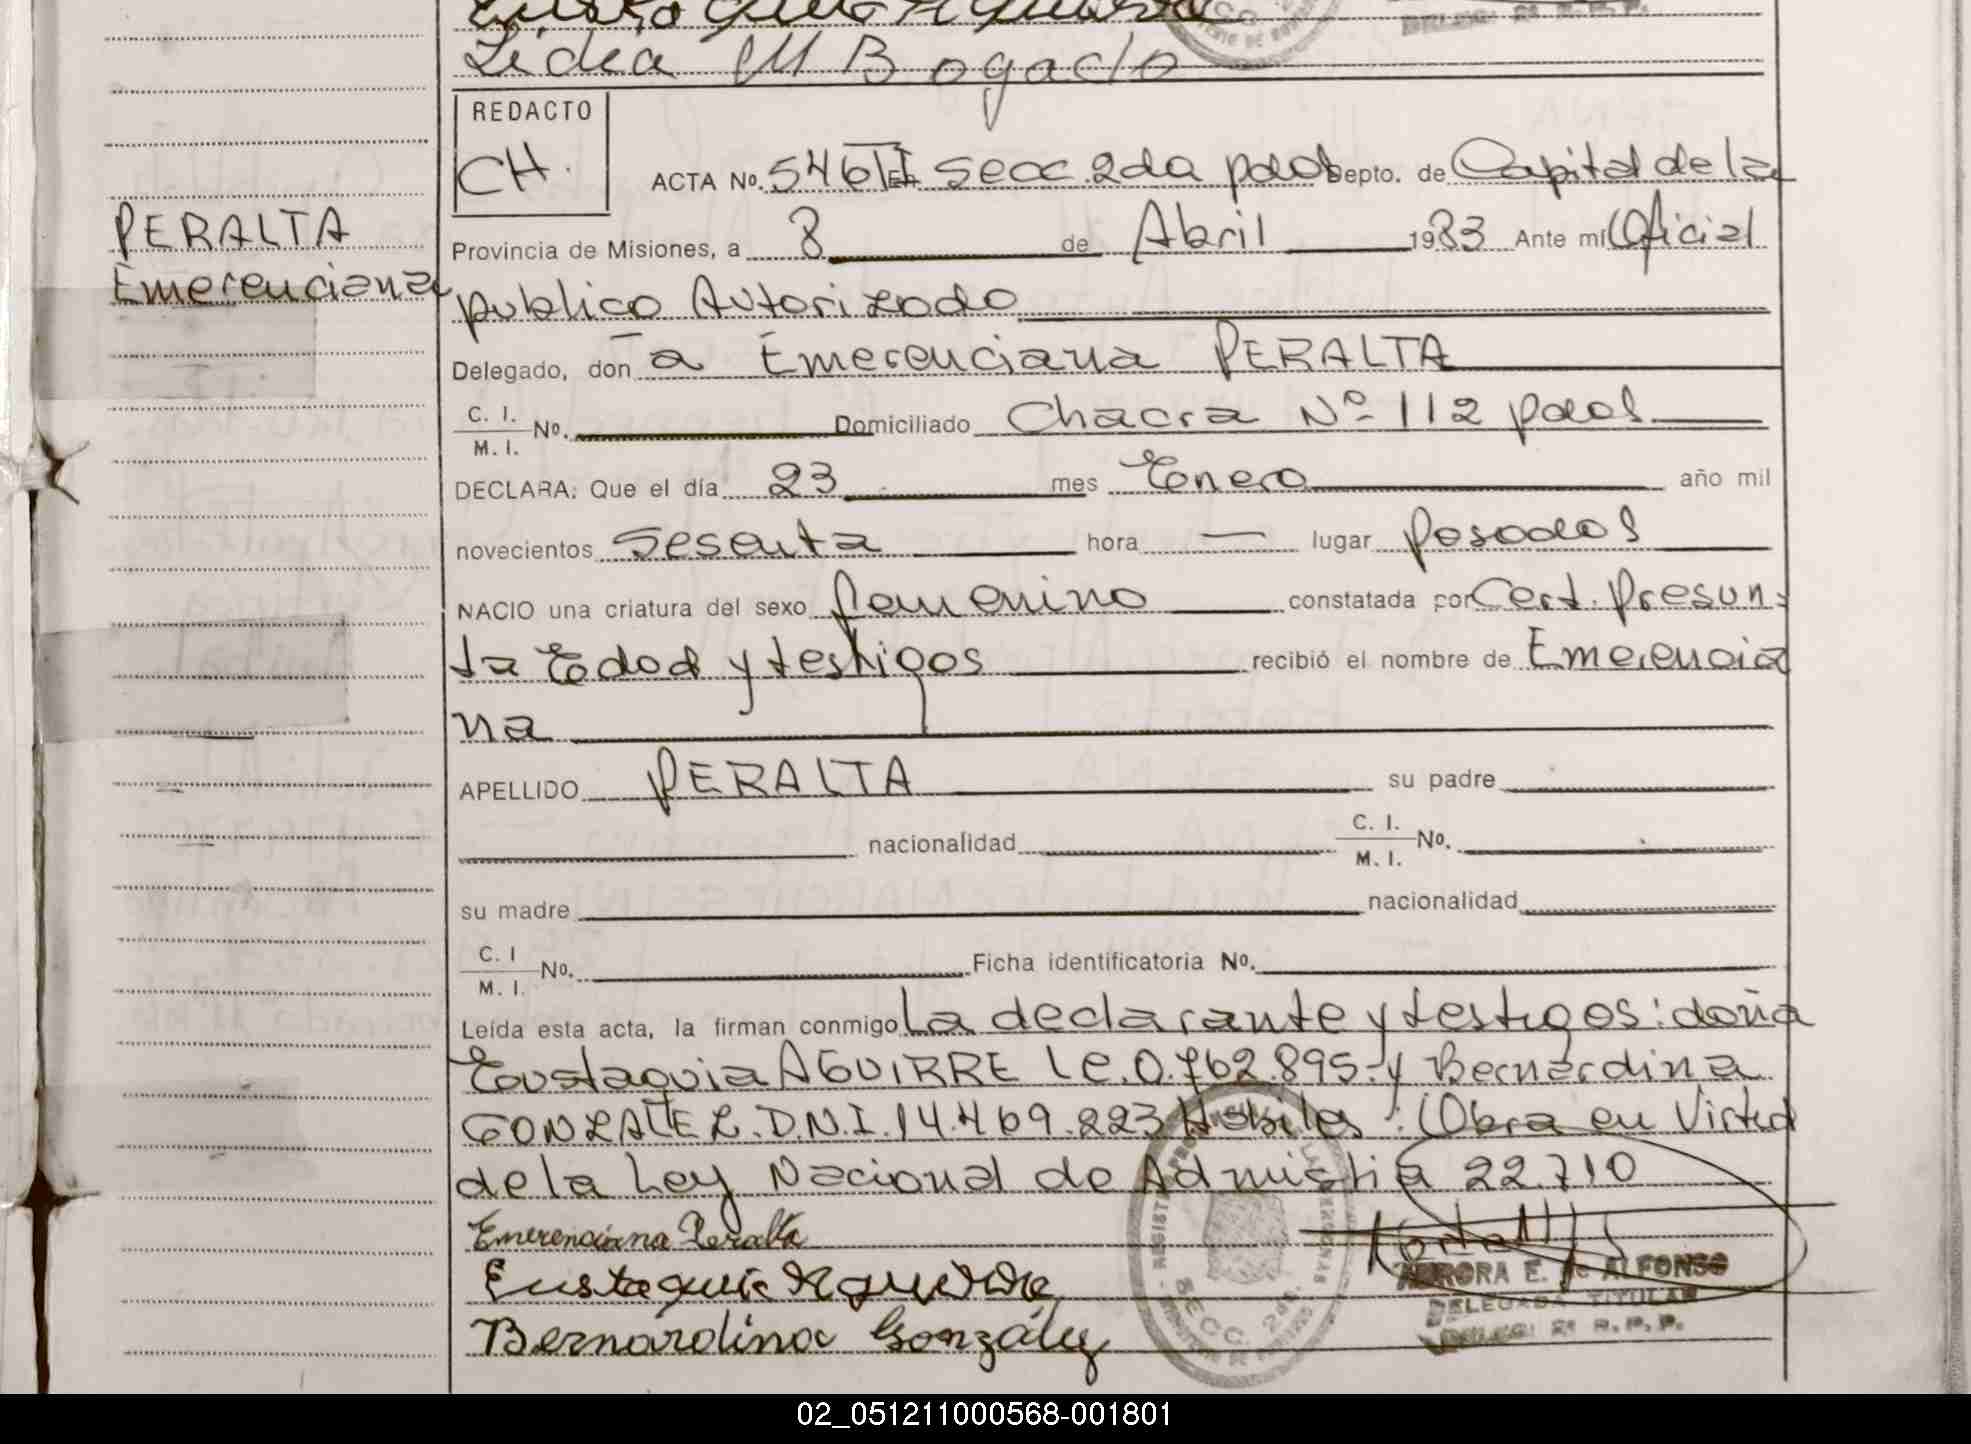 Lidia M Bogado
REDACTO
CH.
ACTA No. 546 TII En Secc 2da pdas Depto. de Capital de la
PERALTA
Emerenciana
Provincia de Misiones, a 8 de Abril 1983 Ante mí Oficial
publico Autorizado
Delegado, don a Emerenciana PERALTA
C. I. M. I. No. Domiciliado Chacra Nº 112 pdas
DECLARA: Que el día 23 mes Enero año mil
novecientos sesenta hora — lugar Posadas
NACIO una criatura del sexo femenino constatada por Cert. Presun-
ta Edad y testigos recibió el nombre de Emerencia
na
APELLIDO PERALTA su padre
nacionalidad C. I. M. I. No.
su madre nacionalidad
C. I M. I. No. Ficha identificatoria No.
Leída esta acta, la firman conmigo La declarante y testigos: doña
Eustaquia AGUIRRE LC. 0.762.895- y Bernardina
GONZALEZ. D.N.I. 14.469.223 Habiles : Obra en Virtud
de la Ley Nacional de Admistia 22.710
Emerenciana Peralta
Eustaquia Aguirre
Bernardina González
AURORA E. de ALFONSO
DELEGADA TITULAR
DELEG. 2ª R. P. P.
SECC. 2da.
02_051211000568-001801